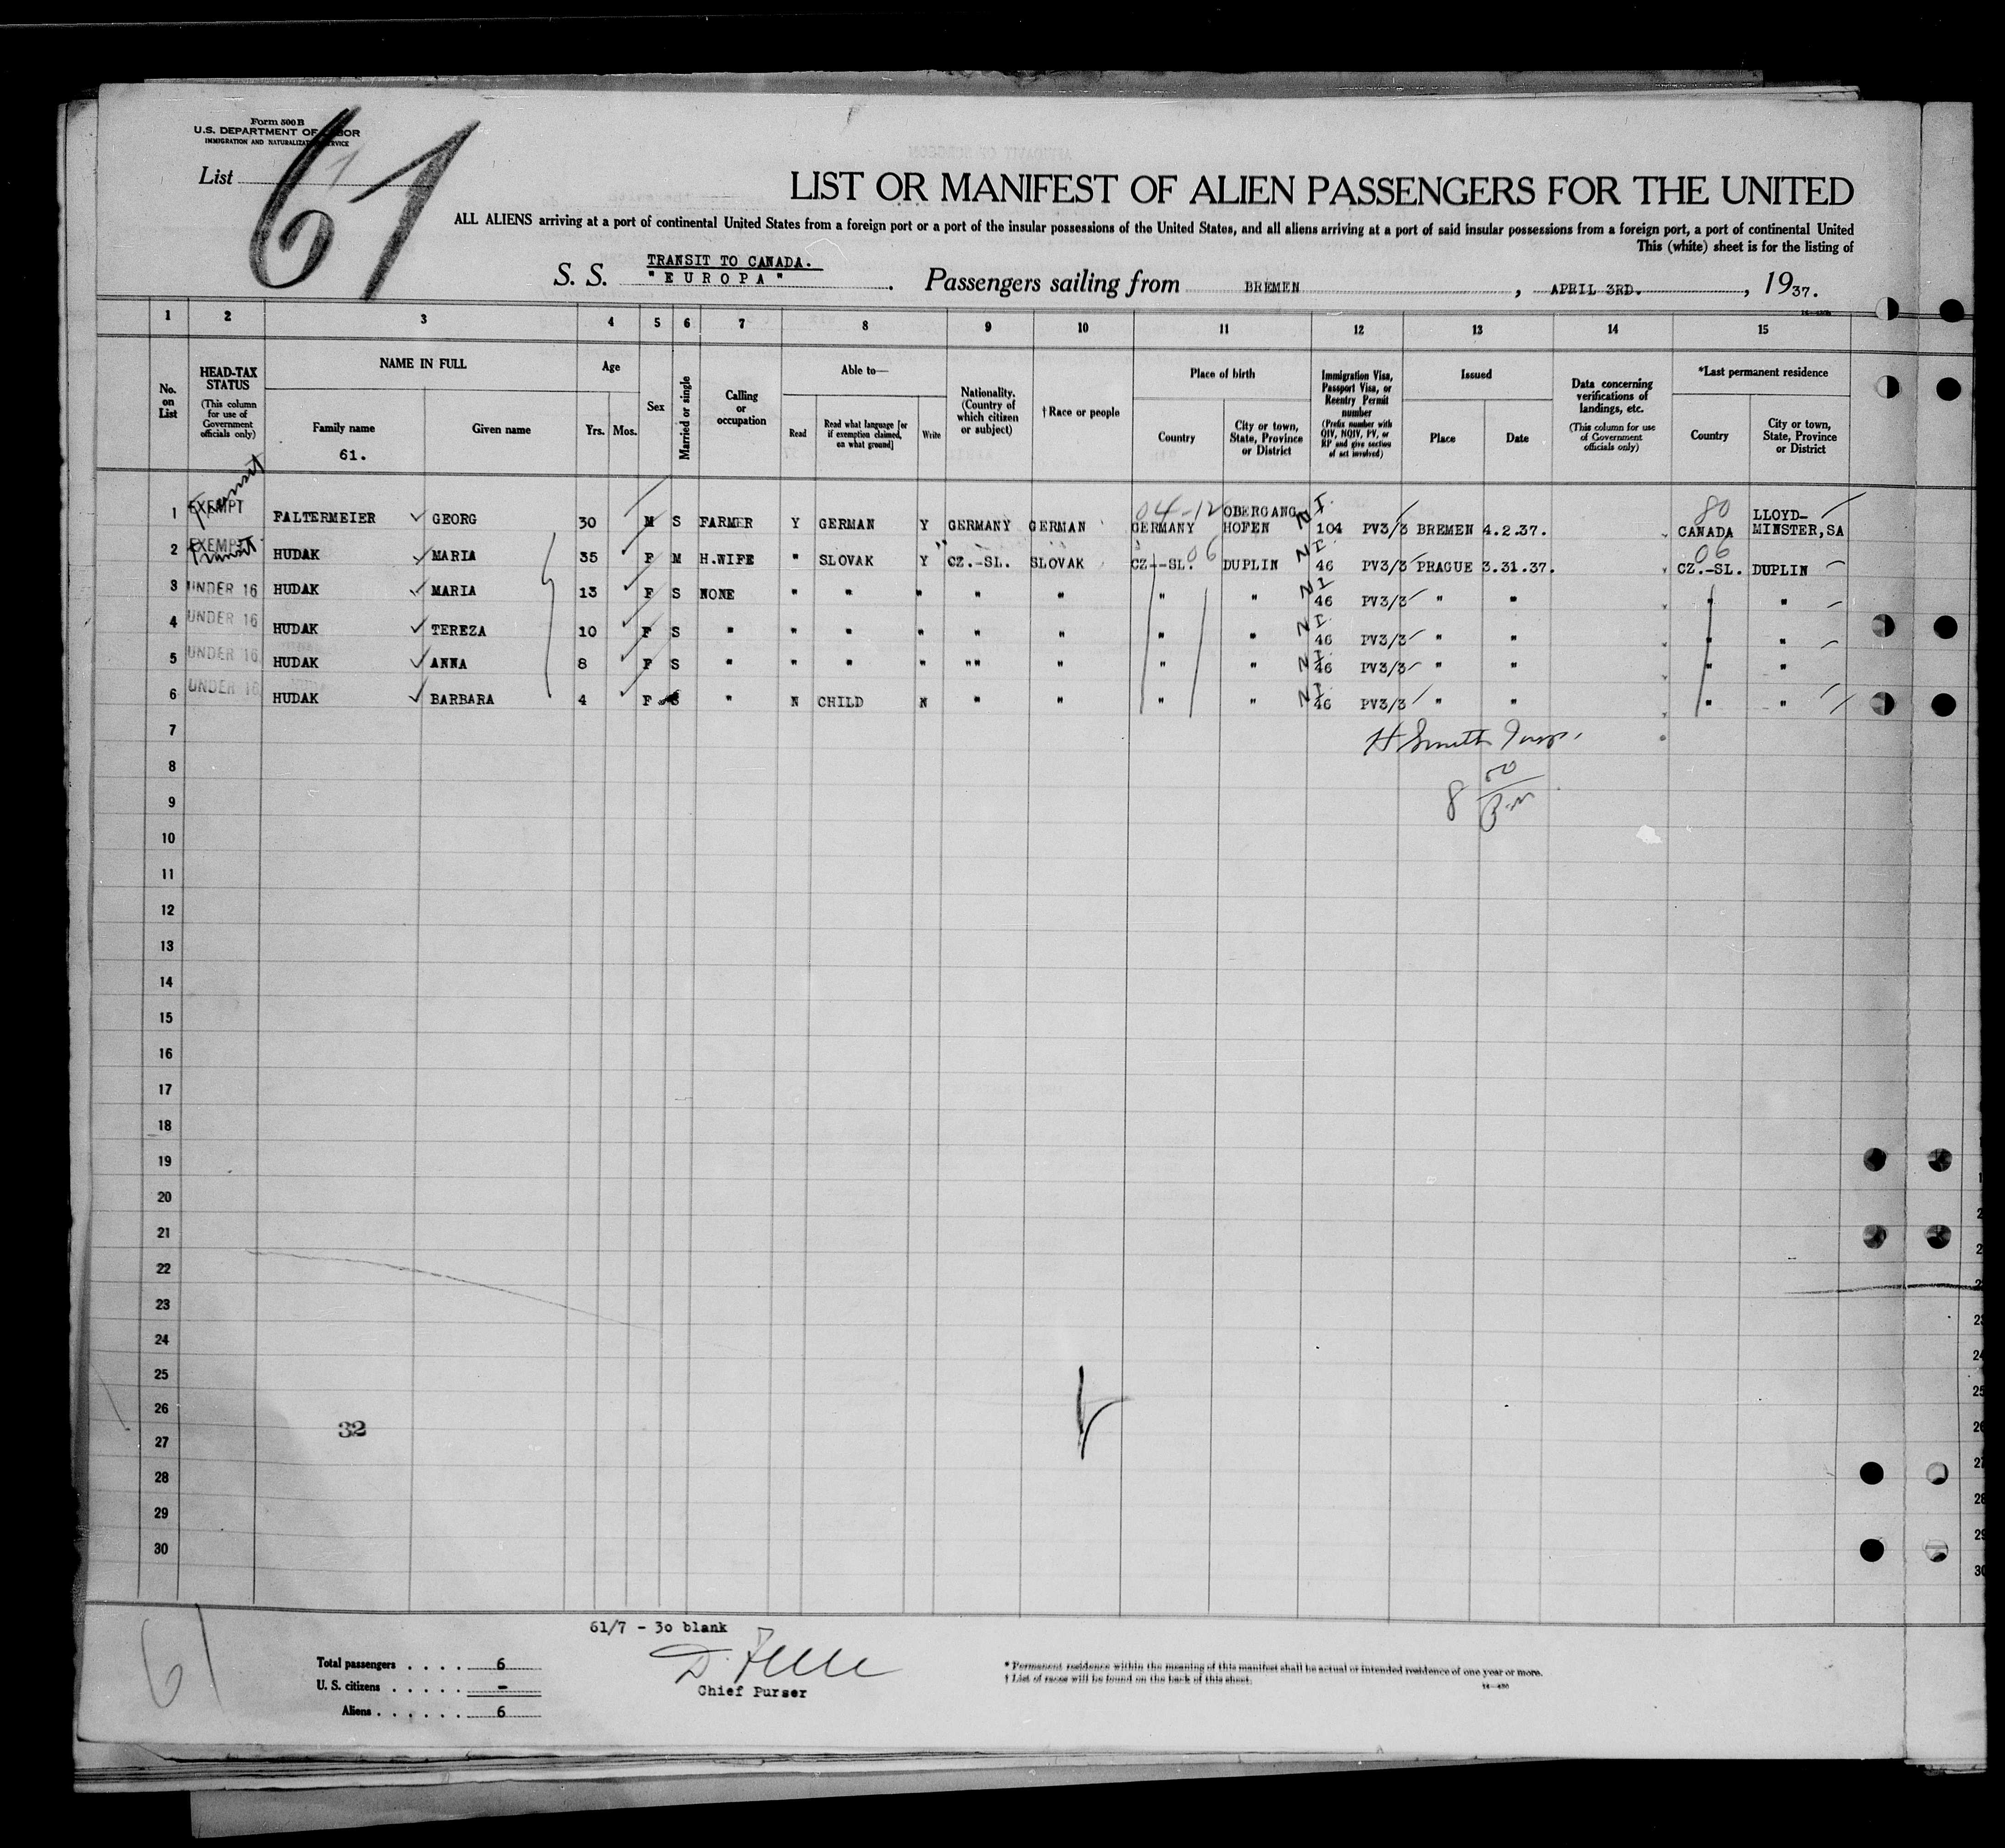 Form 500 B
U.S. DEPARTMENT OF LABOR
IMMIGRATION AND NATURALIZATION SERVICE
List 61
LIST OR MANIFEST OF ALIEN PASSENGERS FOR THE UNITED
ALL ALIENS arriving at a port of continental United States from a foreign port or a port of the insular possessions of the United States, and all aliens arriving at a port of said insular possessions from a foreign port, a port of continental United
This (white) sheet is for the listing of
TRANSIT TO CANADA.
S. S. "EUROPA". Passengers sailing from BREMEN, APRIL 3RD., 1937.
1 2 3 4 5 6 7 8 9 10 11 12 13 14 15
No. on List
HEAD-TAX STATUS (This column for use of Government officials only)
NAME IN FULL
Family name
Given name
61.
Age
Yrs. Mos.
Sex
Married or single
Calling or occupation
Able to—
Read
Read what language [or if exemption claimed, on what ground]
Write
Nationality. (Country of which citizen or subject)
†Race or people
Place of birth
Country
City or town, State, Province or District
Immigration Visa, Passport Visa, or Reentry Permit number (Prefix number with QIV, NQIV, PV, or RP and give section of act involved)
Issued
Place
Date
Data concerning verifications of landings, etc. (This column for use of Government officials only)
*Last permanent residence
Country
City or town, State, Province or District
1 EXEMPT Transit FALTERMEIER GEORG 30 M S FARMER Y GERMAN Y GERMANY GERMAN 04-12 GERMANY OBERGANGHOFEN N I. 104 PV3/3 BREMEN 4.2.37. 80 CANADA LLOYD-MINSTER,SA
2 EXEMPT Transit HUDAK MARIA 35 F M H.WIFE " SLOVAK Y CZ.-SL. SLOVAK CZ.-SL. 06 DUPLIN N I. 46 PV3/3 PRAGUE 3.31.37. 06 CZ.-SL. DUPLIN
3 UNDER 16 HUDAK MARIA 13 F S NONE " " " " " " " N I 46 PV3/3 " " " "
4 UNDER 16 HUDAK TEREZA 10 F S " " " " " " " " N I. 46 PV3/3 " " " "
5 UNDER 16 HUDAK ANNA 8 F S " " " " "" " " " N I. 46 PV3/3 " " " "
6 UNDER 16 HUDAK BARBARA 4 F S " N CHILD N " " " " N I. 46 PV3/3 " " " "
7 H Smith Insp.
8 8 50
9 P.M
10
11
12
13
14
15
16
17
18
19
20
21
22
23
24
25
26
32
27
28
29
30
61/7 - 30 blank
61
Total passengers . . . . 6
U. S. citizens . . . . . -
Aliens . . . . . . 6
Chief Purser
* Permanent residence within the meaning of this manifest shall be actual or intended residence of one year or more.
† List of races will be found on the back of this sheet.